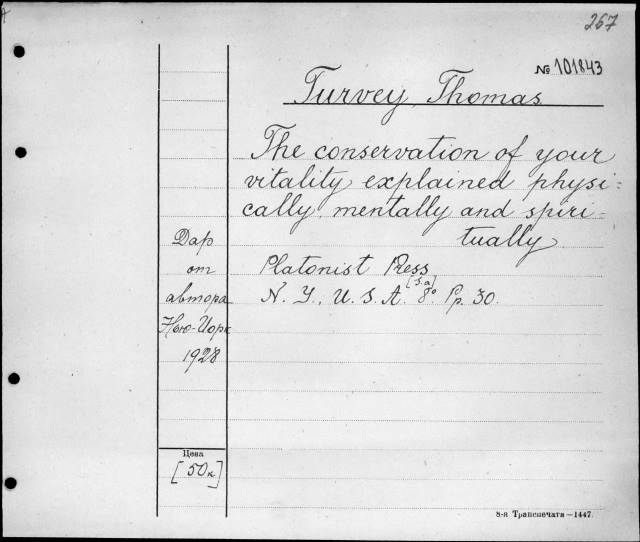 267
№ 101843
Turvey, Thomas
The conservation of your
vitality explained physi=
cally mentally and spiri=
tually.
Дар
от
автора
Нью-Йорк
1928
Platonist Press
[S.a]
N. Y., U. S. A. 8° Pp. 30.
Цена
[50к]
8-я Транспечать — 1447.